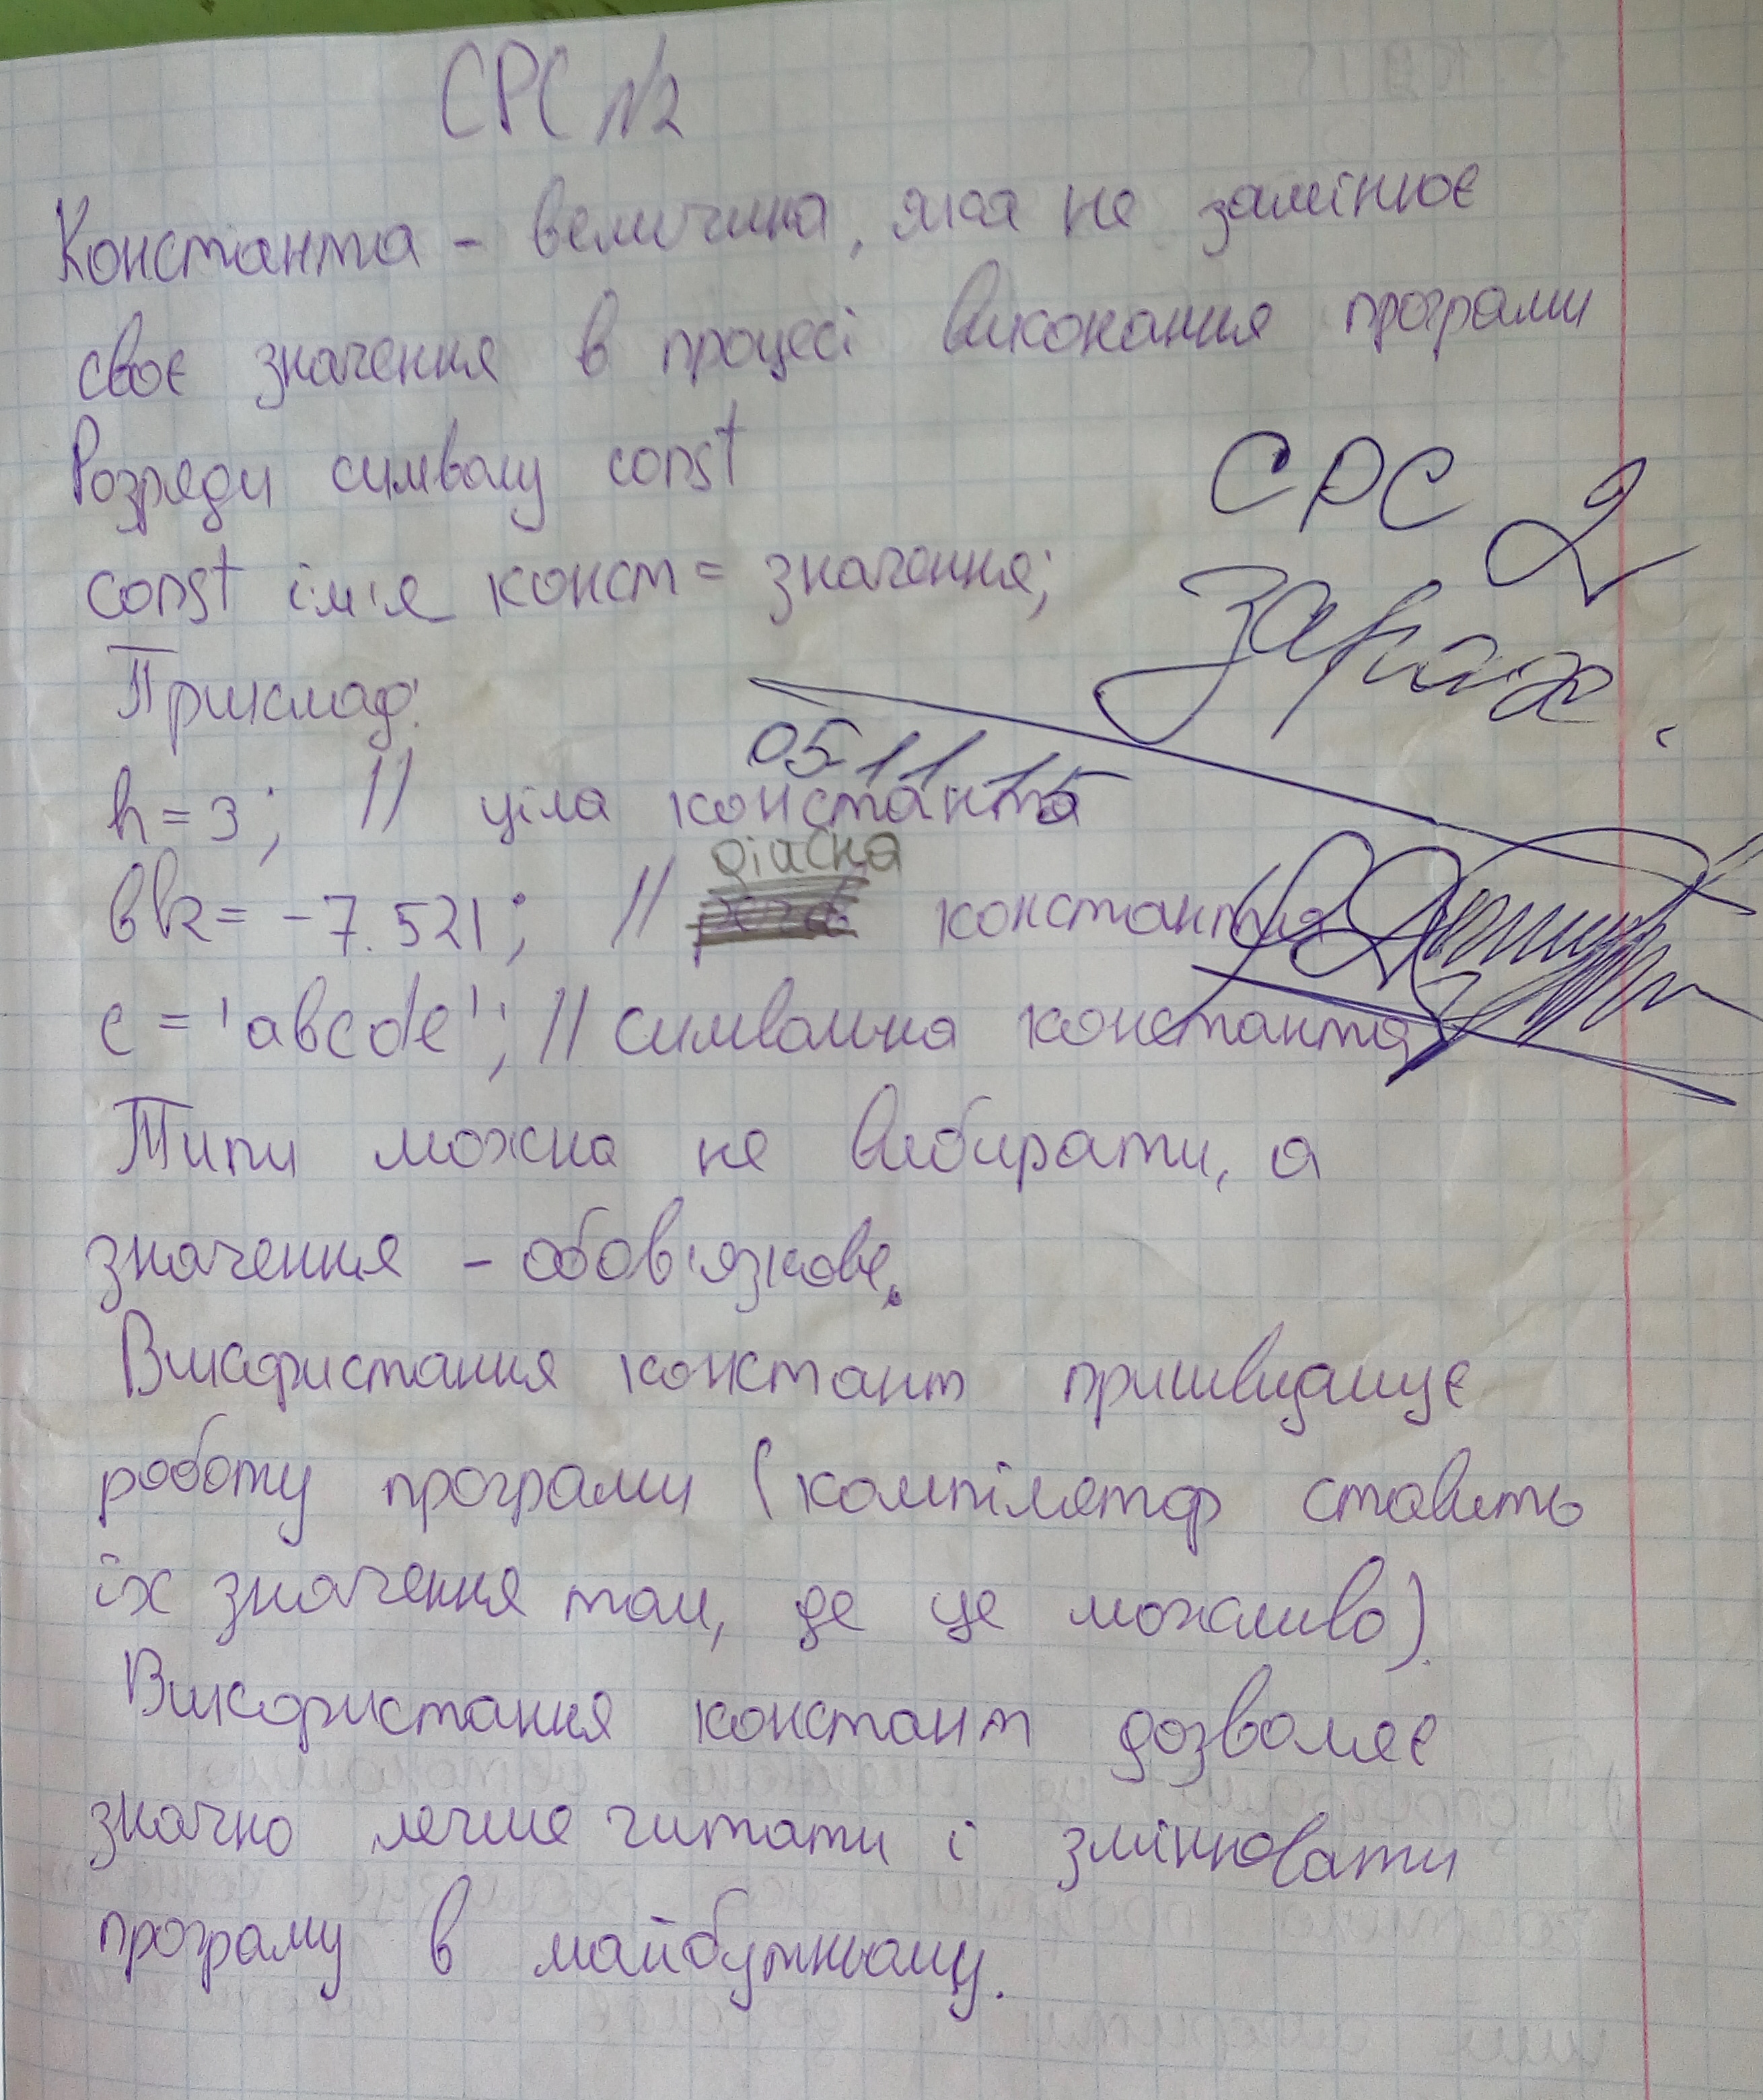 СРС №2
Константа - величина, яка не замінює
своє значення в процесі виконання програми
Розряди символу const
СРС 2
const ім'я конст = значення;
Зарах.
Приклад:
05.11.15
h = 3; // ціла константа
дійсна
bk = -7.521; // константа
c = 'abcde'; // символьна константа
Типи можна не вибирати, а
значення - обов'язкове.
Використання констант пришвидшує
роботу програми (компілятор ставить
їх значення там, де це можливо).
Використання констант дозволяє
значно легше читати і змінювати
програму в майбутньому.